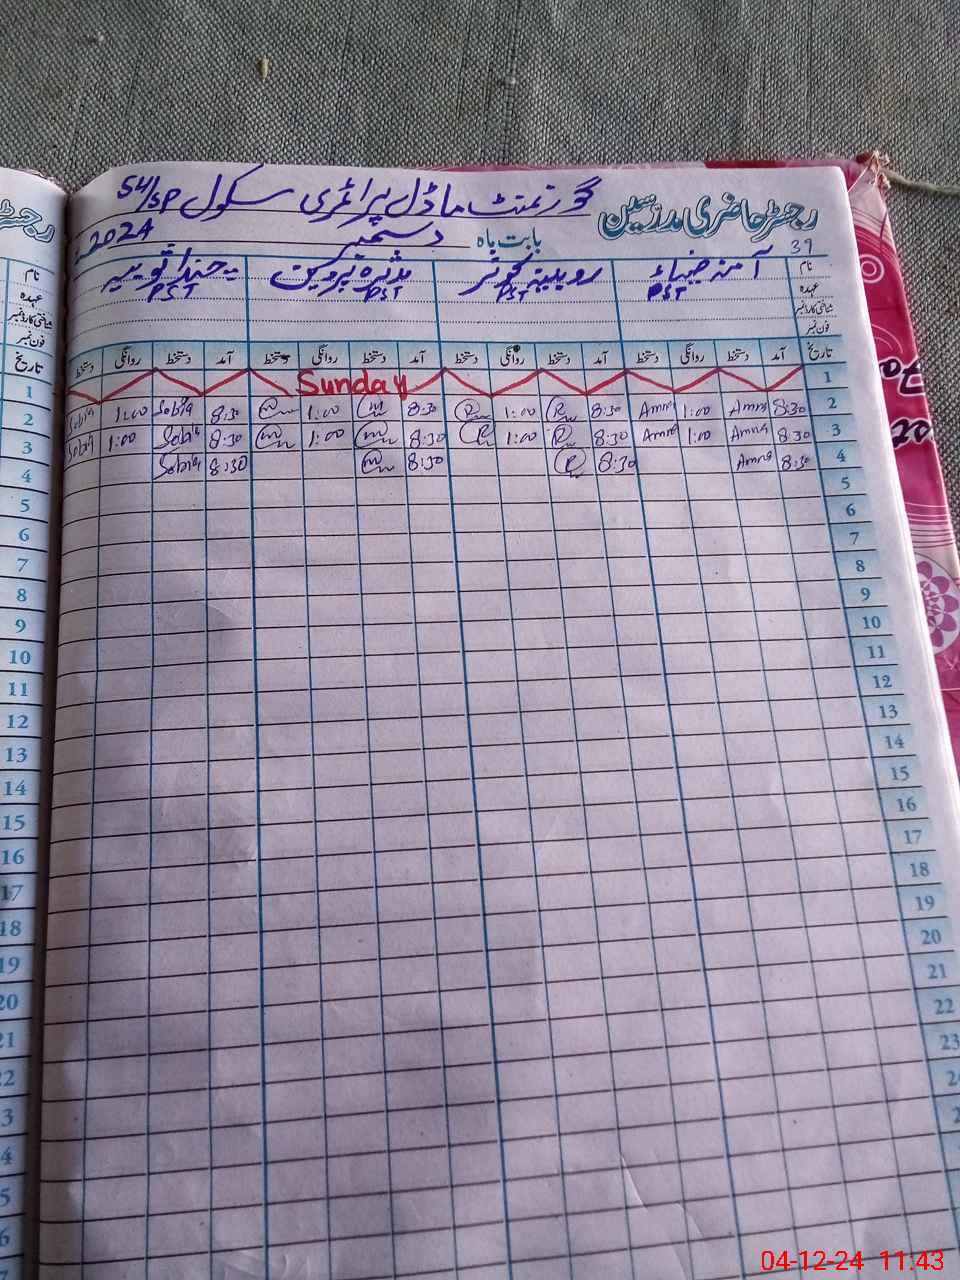 رجسٹر حاضری مدرسین گورنمنٹ ماڈل پرائمری سکول 54/SP
بابت ماہ دسمبر 2024
39
نام آمنہ ضیاء روبینہ کوثر
عہدہ PST PST PST PST
شناختی کارڈ نمبر
فون نمبر
تاریخ آمد دستخط روانگی دستخط آمد دستخط روانگی دستخط آمد دستخط روانگی دستخط آمد دستخط روانگی دستخط
1 Sunday
2 8:30 Amna 1:00 Amna 8:30 R 1:00 R 8:30 1:00 8:30 Sobia 1:00 Sobia
3 8:30 Amna 1:00 Amna 8:30 R 1:00 R 8:30 1:00 8:30 Sobia 1:00 Sobia
4 8:30 Amna 8:30 R 8:30 8:30 Sobia
5
6
7
8
9
10
11
12
13
14
15
16
17
18
19
20
21
22
23
رجسٹر
نام
عہدہ
شناختی کارڈ نمبر
فون نمبر
تاریخ
1
2
3
4
5
6
7
8
9
10
11
12
13
14
15
16
17
18
19
20
04-12-24 11:43